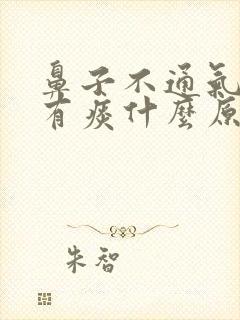 鼻子不通氣
有痰什麼原
朱智